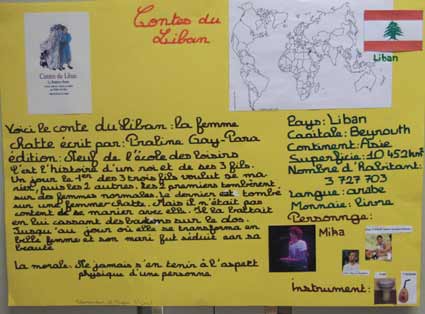 Contes du
Liban
Contes du Liban
Liban
Voici le conte du Liban : la femme
chatte écrit par : Praline Gay-Para
édition : Neuf de l'école des loisirs
C'est l'histoire d'un roi et de ses 3 fils.
Un jour le 1er des trois fils voulut se ma
rier, puis les 2 autres. Les 2 premiers tombèrent
sur des femmes normales. Le dernier est tombé
sur une femme-chatte. Mais il n'était pas
content de se marier avec elle. Il la battait
en lui cassant des bâtons sur le dos.
Jusqu'au jour où elle se transforma en
belle femme et son mari fut séduit par sa
beauté
La morale : Ne jamais s'en tenir à l'aspect
physique d'une personne
Pays : Liban
Capitale : Beyrouth
Continent : Asie
Superficie : 10 452 km²
Nombre d'habitant :
3 727 703
Langue : arabe
Monnaie : livre
Personnage :
Mika
Instrument :